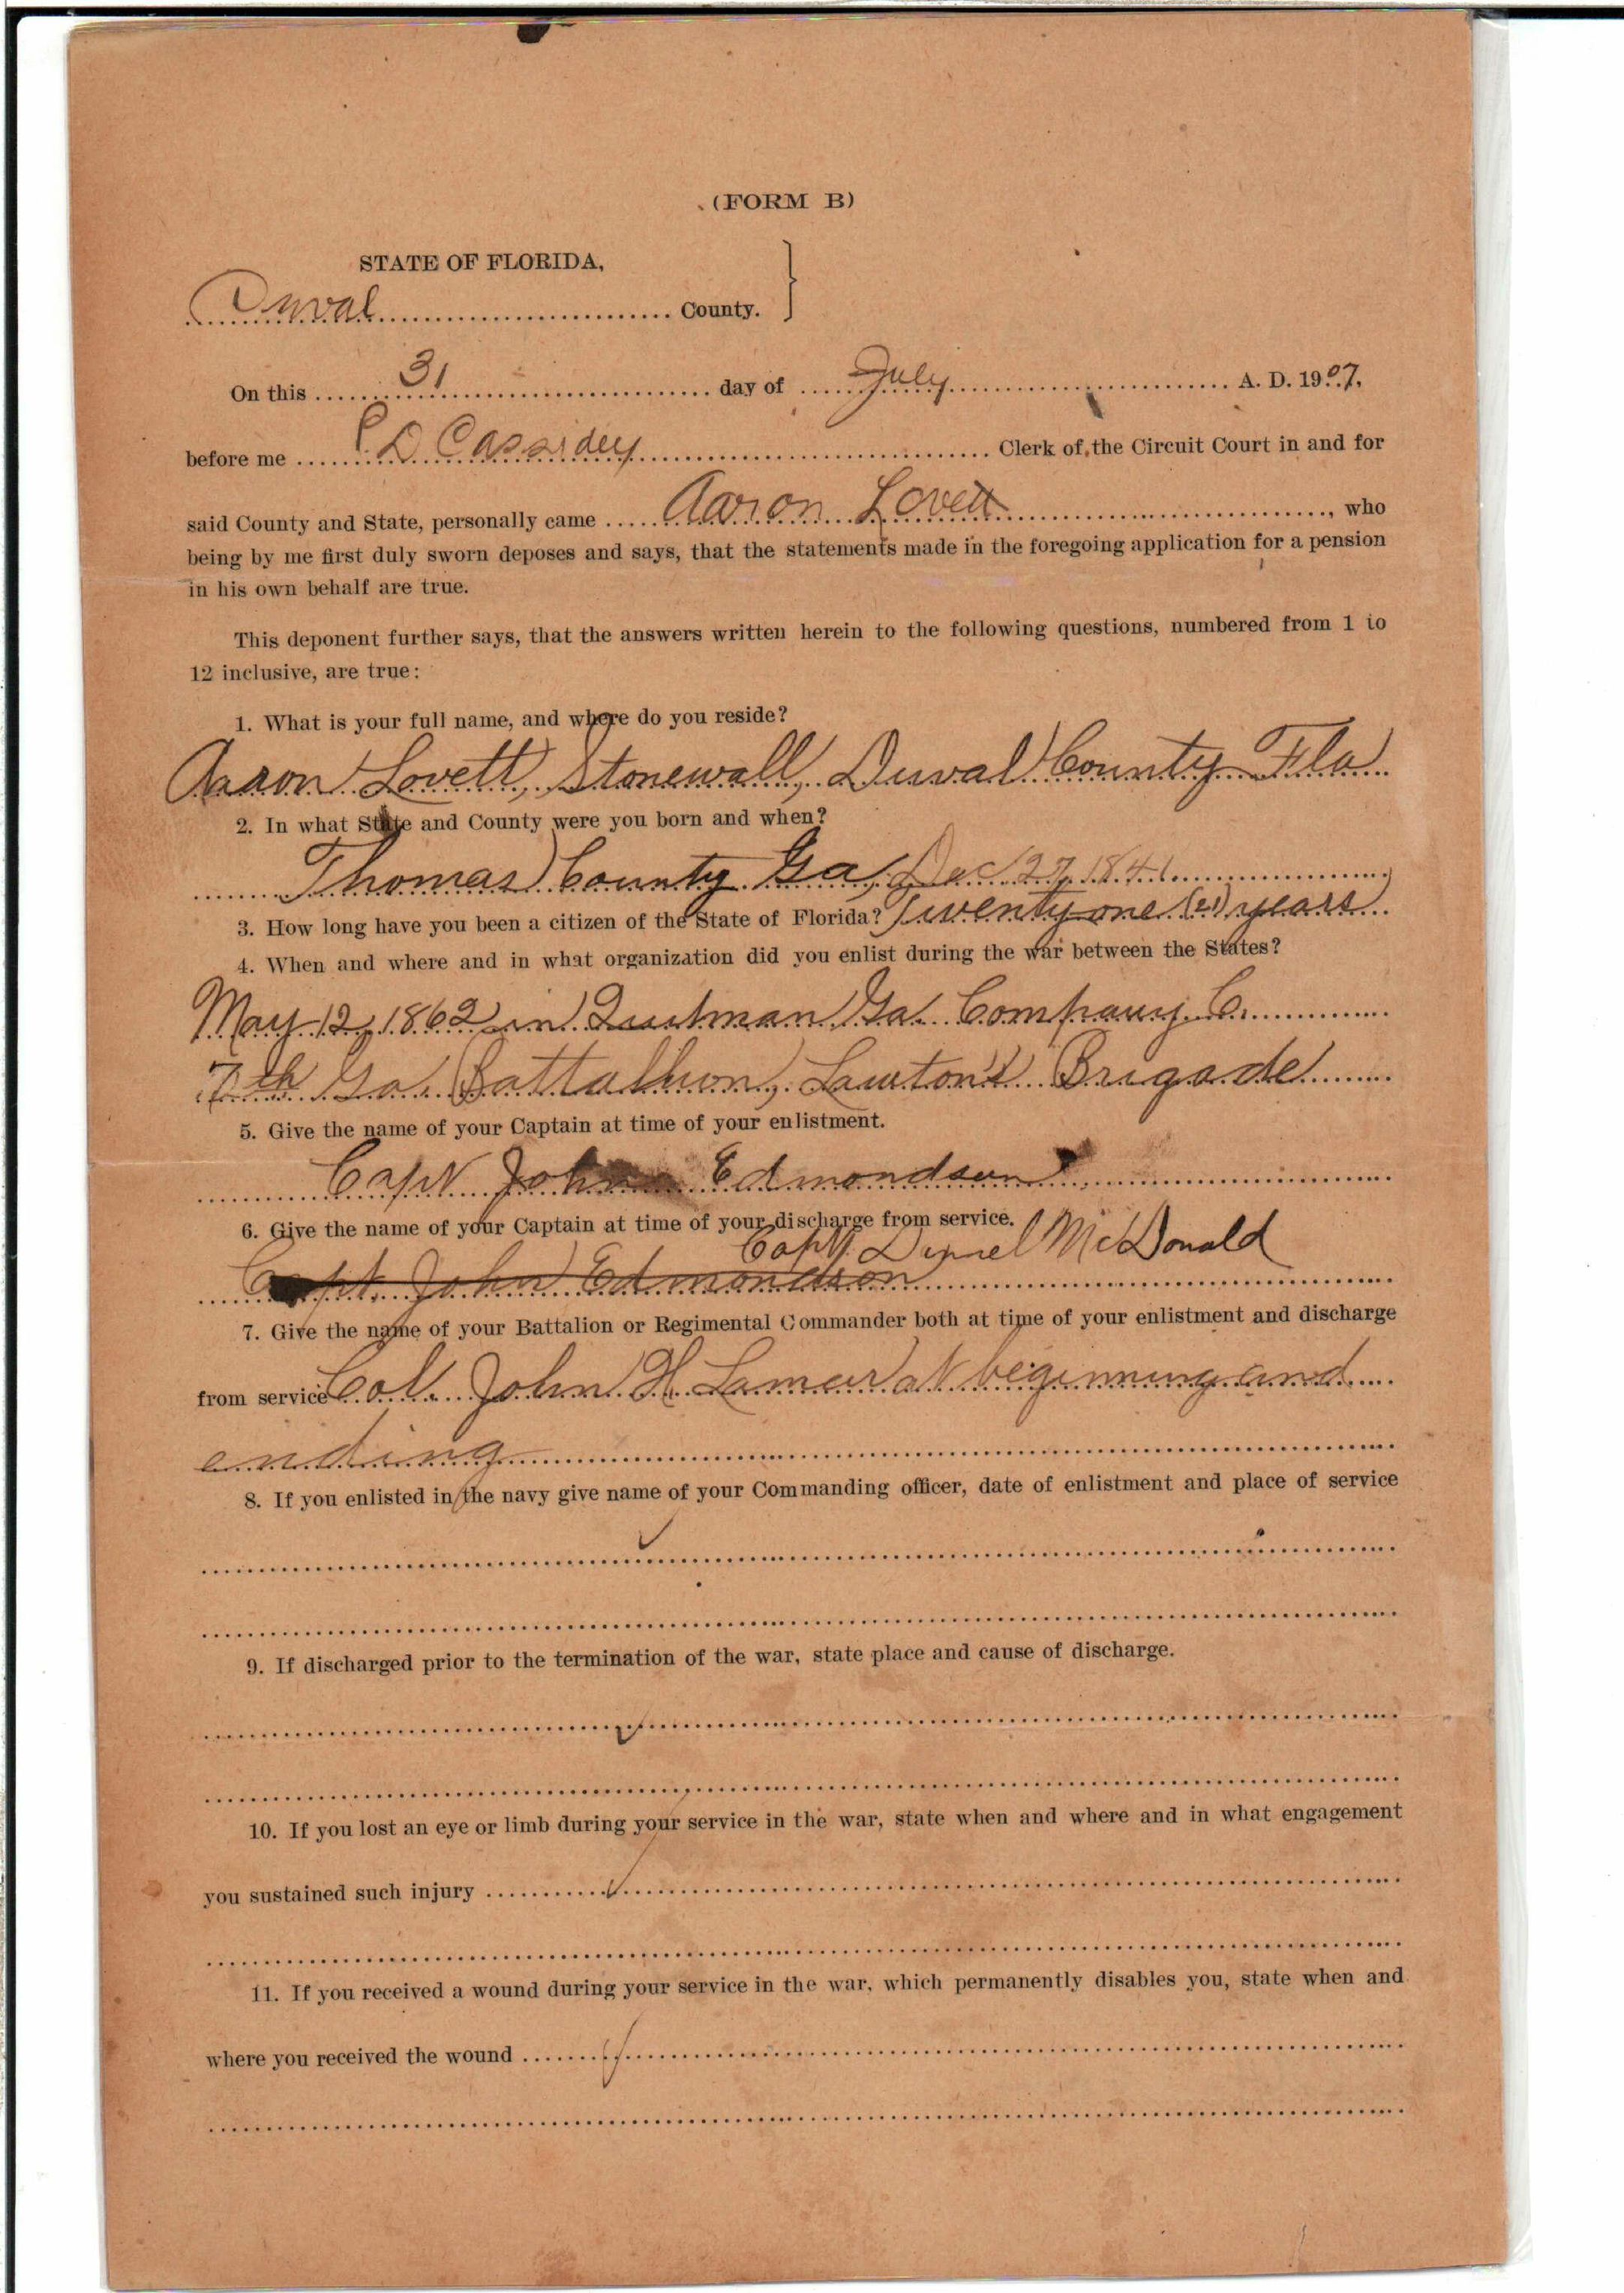 (FORM B)
STATE OF FLORIDA,
Duval County.
On this 31 day of July A. D. 1907,
before me P D Cassidey Clerk of the Circuit Court in and for
said County and State, personally came Aaron Lovett, who
being by me first duly sworn deposes and says, that the statements made in the foregoing application for a pension
in his own behalf are true.
This deponent further says, that the answers written herein to the following questions, numbered from 1 to
12 inclusive, are true:
1. What is your full name, and where do you reside?
Aaron Lovett, Stonewall, Duval County Fla
2. In what State and County were you born and when?
Thomas County Ga, Dec 27, 1841
3. How long have you been a citizen of the State of Florida? Twenty one (21) years
4. When and where and in what organization did you enlist during the war between the States?
May 12, 1862 in Quitman Ga. Company C.
7th Ga. Battalion, Lawton's Brigade
5. Give the name of your Captain at time of your enlistment.
Capt John Edmondson
6. Give the name of your Captain at time of your discharge from service.
Capt. Daniel McDonald
Capt. John Edmondson
7. Give the name of your Battalion or Regimental Commander both at time of your enlistment and discharge
from service Col. John H. Lamar at beginning and
ending
8. If you enlisted in the navy give name of your Commanding officer, date of enlistment and place of service
9. If discharged prior to the termination of the war, state place and cause of discharge.
10. If you lost an eye or limb during your service in the war, state when and where and in what engagement
you sustained such injury
11. If you received a wound during your service in the war, which permanently disables you, state when and
where you received the wound